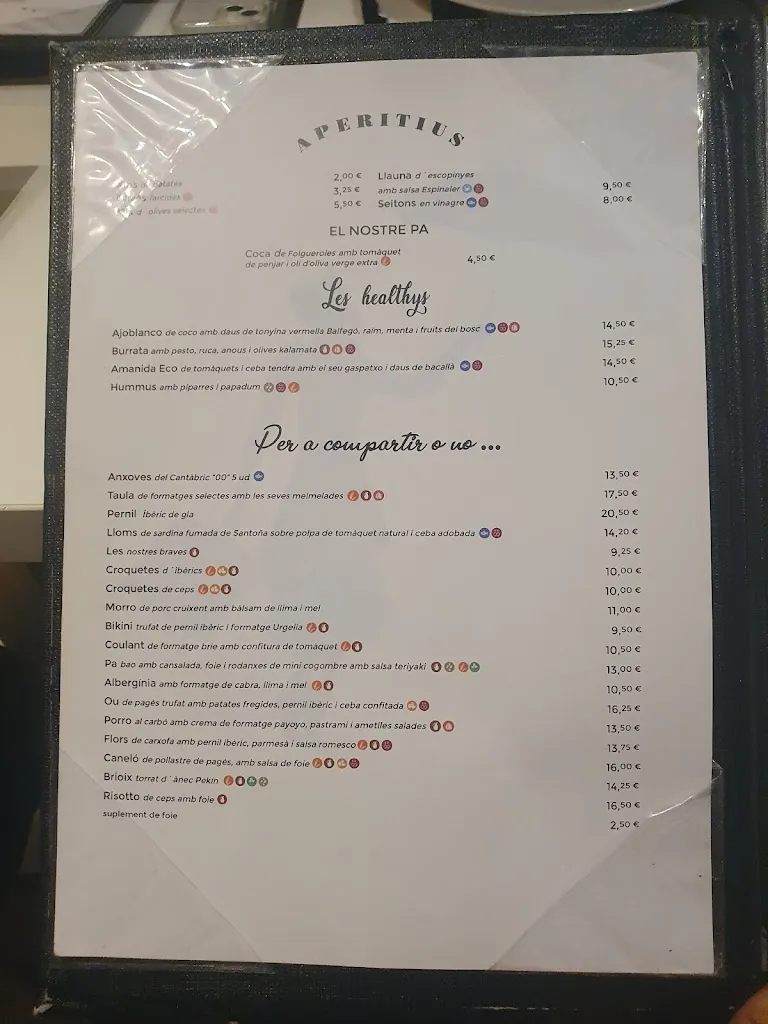 APERITIUS
d´Patates 2,00 €
farcides 3,25 €
d´olives selectes 5,50 €
Llauna d´escopinyes
amb salsa Espinaler 9,50 €
Seitons en vinagre 8,00 €
EL NOSTRE PA
Coca de Folgueroles amb tomàquet
de penjar i oli d'oliva verge extra 4,50 €
Les healthys
Ajoblanco de coco amb daus de tonyina vermella Balfegó, raïm, menta i fruits del bosc 14,50 €
Burrata amb pesto, ruca, anous i olives kalamata 15,25 €
Amanida Eco de tomàquets i ceba tendra amb el seu gaspatxo i daus de bacallà 14,50 €
Hummus amb piparres i papadum 10,50 €
Per a compartir o no ...
Anxoves del Cantàbric "00" 5 ud 13,50 €
Taula de formatges selectes amb les seves melmelades 17,50 €
Pernil Ibèric de gla 20,50 €
Lloms de sardina fumada de Santoña sobre polpa de tomàquet natural i ceba adobada 14,20 €
Les nostres braves 9,25 €
Croquetes d´ibèrics 10,00 €
Croquetes de ceps 10,00 €
Morro de porc cruixent amb bàlsam de llima i mel 11,00 €
Bikini trufat de pernil ibèric i formatge Urgelia 9,50 €
Coulant de formatge brie amb confitura de tomàquet 10,50 €
Pa bao amb cansalada, foie i rodanxes de mini cogombre amb salsa teriyaki 13,00 €
Albergínia amb formatge de cabra, llima i mel 10,50 €
Ou de pagès trufat amb patates fregides, pernil ibèric i ceba confitada 16,25 €
Porro al carbó amb crema de formatge payoyo, pastrami i ametlles salades 13,50 €
Flors de carxofa amb pernil ibèric, parmesà i salsa romesco 13,75 €
Caneló de pollastre de pagès, amb salsa de foie 16,00 €
Brioix torrat d´ànec Pekín 14,25 €
Risotto de ceps amb foie 16,50 €
suplement de foie 2,50 €